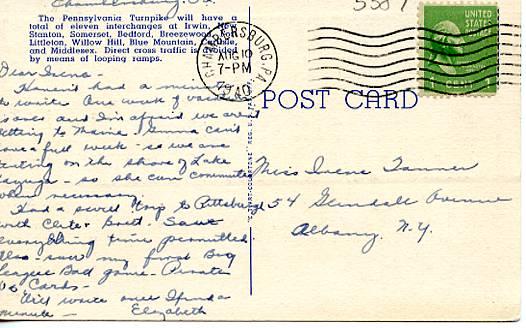 Chambersburg, Pa.
The Pennsylvania Turnpike will have a
total of eleven interchanges at Irwin, New
Stanton, Somerset, Bedford, Breezewood,
Littleton, Willow Hill, Blue Mountain, Carlisle,
and Middlesex. Direct cross traffic is avoided
by means of looping ramps.
CHAMBERSBURG, PA.
AUG 10
7-PM
1940
UNITED
STATES
POSTAGE
1 CENT 1
POST CARD
Dear Irene -
Haven't had a minute
to write. One week of
and I'm afraid we aren't
getting to Maine. Emma can't
have a full week - so we are
on the shore of Lake
Cayuga - so she can commute
when necessary.
Had a swell trip to Pittsburgh
with Clete Brett. Saw
everything time permitted.
Also - saw my first Big
League Ball game - Pirates
vs Cards -
Will write once I find a
minute - Elizabeth
Miss Irene Tanner
54 Avenue
Albany, N.Y.